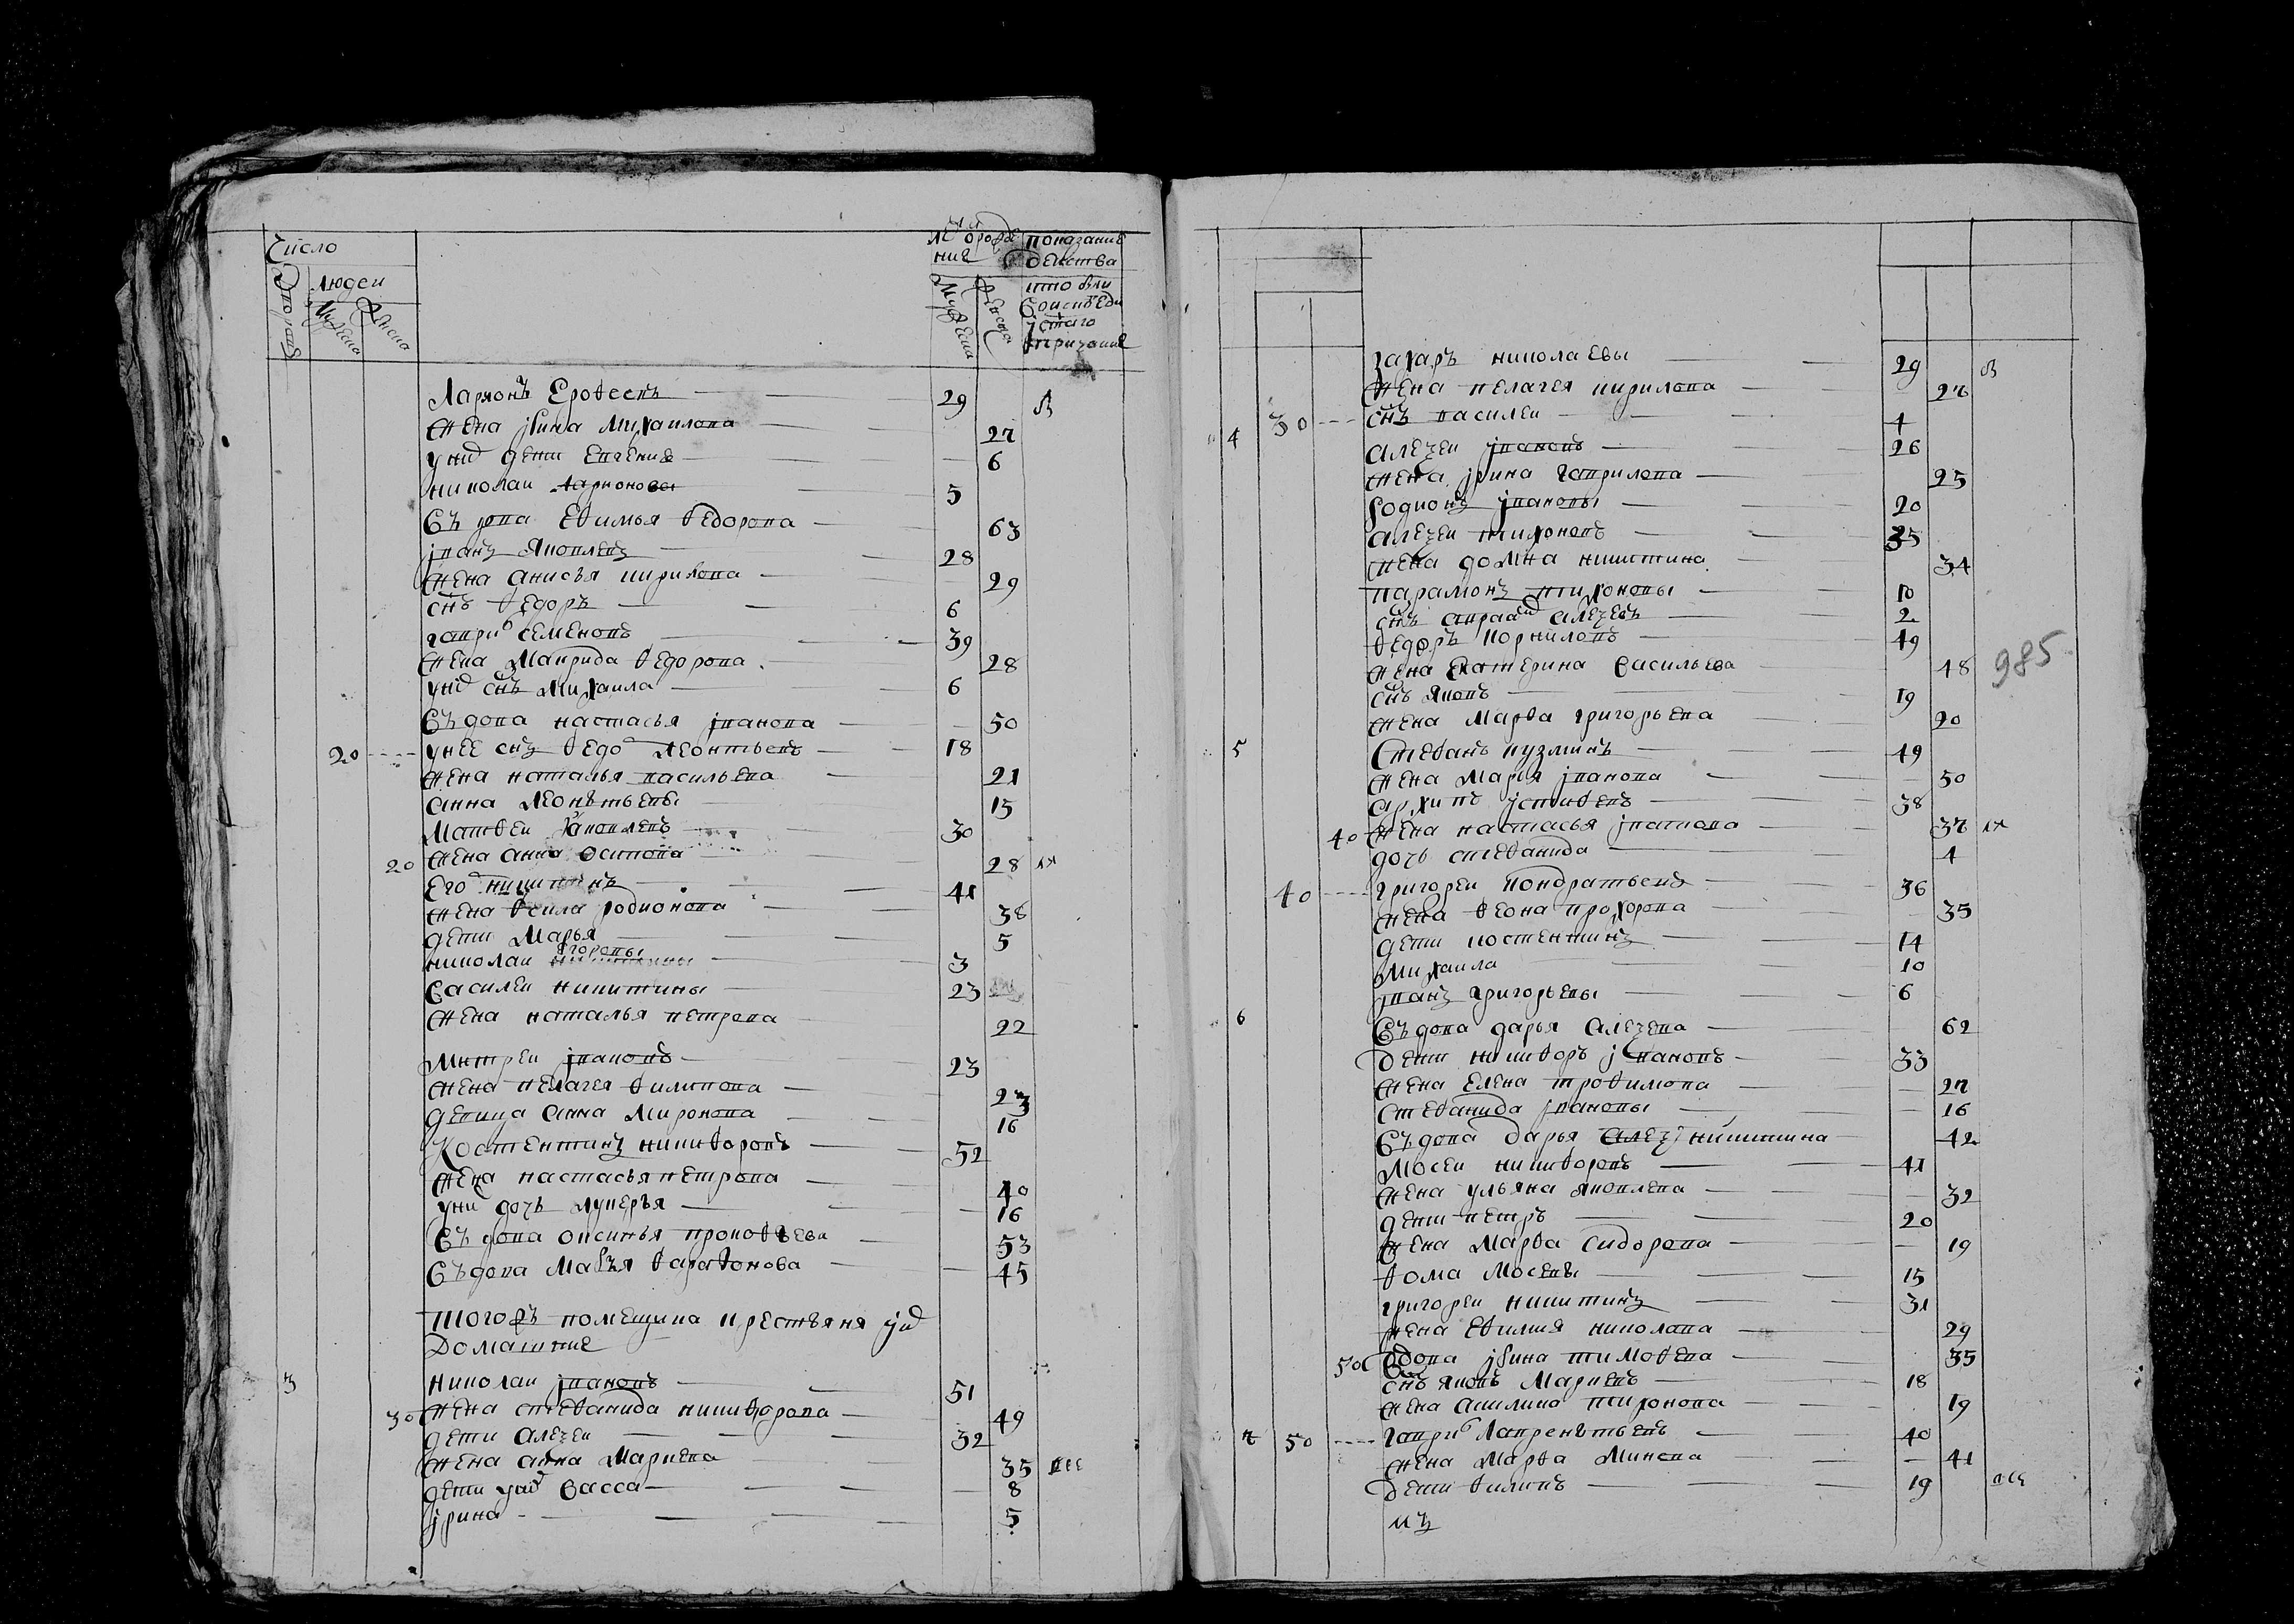 Число
людеи
мужеска
женска
лета от рожде
ния
мужеска
женска
показание
действа
кто был
Ларионъ Ерофеевъ 29 в
жена Ирина Михаилова 27
у них дети Евгения 6
николаи Ларионовы 5
Въдова Ефимья федорова 63
Іванъ Яковлевъ 28
жена анисья кирилова 29
снъ федоръ 6
гаври семеновъ 39
жена Маврида федорова 28
у них снъ Михаила 6
Въдова настасья Іванова 50
20 у нее снъ федо Леонтьевъ 18
жена наталья васильева 21
анна Леонътьевы 15
Матфеи Яковлевъ 30
20 жена анна осипова 28
Его никитинъ 41
жена родионова 38
дети Марья 5
николаи Егоровы 3
Василеи никитины 23
жена наталья петрова 22
Митреи Івановъ 23
жена пелагея филипова 23
девица анна Миронова 16
Костентинъ никифоровъ 52
жена настасья петрова 40
у них дочь лукерья 16
Въдова оксинья прокофьева 53
Въдова Марья фарафонова 45
тогожъ помещика крестьяня
Домашние
3 николаи Івановъ 51
30 жена стефанида никифорова 49
дети алезеи 32
жена анна Маркова 35
дети у них Васса 8
Ірина 5
захаръ николаевы 29 в
жена пелагея кирилова 26
30 снъ василеи 4
4 алезеи Івановъ 26
жена Ірина гаврилова 25
Родионъ Івановы 20
алезеи тихоновъ 35
жена домна никитина 34
парамонъ тихоновы 10
снъ алезеевъ 2
федоръ корниловъ 49
жена Екатерина Васильева 48
985
снъ яковъ 19
жена Марфа григорьева 20
5 Стефанъ кузминъ 49
жена Марья Іванова 50
архипъ 38
40 жена настасья 37
дочь стефанида 4
40 григореи кондратьевъ 36
жена феона прохорова 35
дети костентинъ 14
Михаила 10
Іванъ григорьевы 6
6 Въдова дарья алезева 62
дети никифоръ Івановъ 33
жена Елена трофимова 27
стефанида Івановы 16
Въдова дарья никитина 42
Мосеи никифоровъ 41
жена ульяна яковлева 32
дети петръ 20
жена Марфа Сидорова 19
фома Мосевы 15
григореи никитинъ 31
жена Ефимия николава 29
50 Вдова Ірина тимофева 35
снъ яковъ Маркевъ 18
жена акилина тихонова 19
7 50 гаври Лавренътьевъ 40
жена Марфа Минева 41
дети филипъ 19